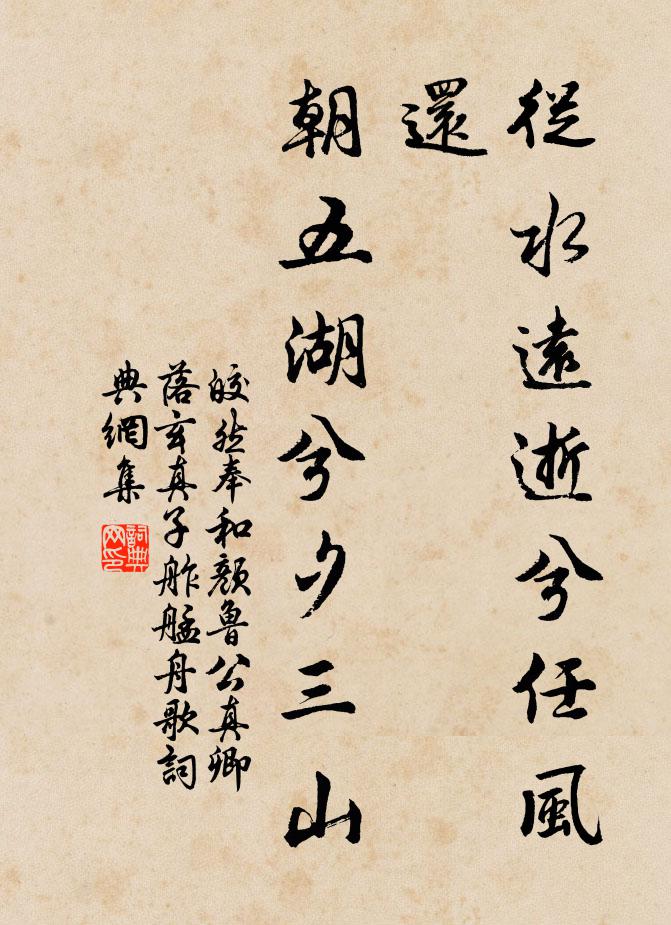 從水遠逝兮任風
還
朝五湖兮夕三山
皎然奉和顏魯公真卿
落玄真子舴艋舟歌詞
典網集
詞典
网印